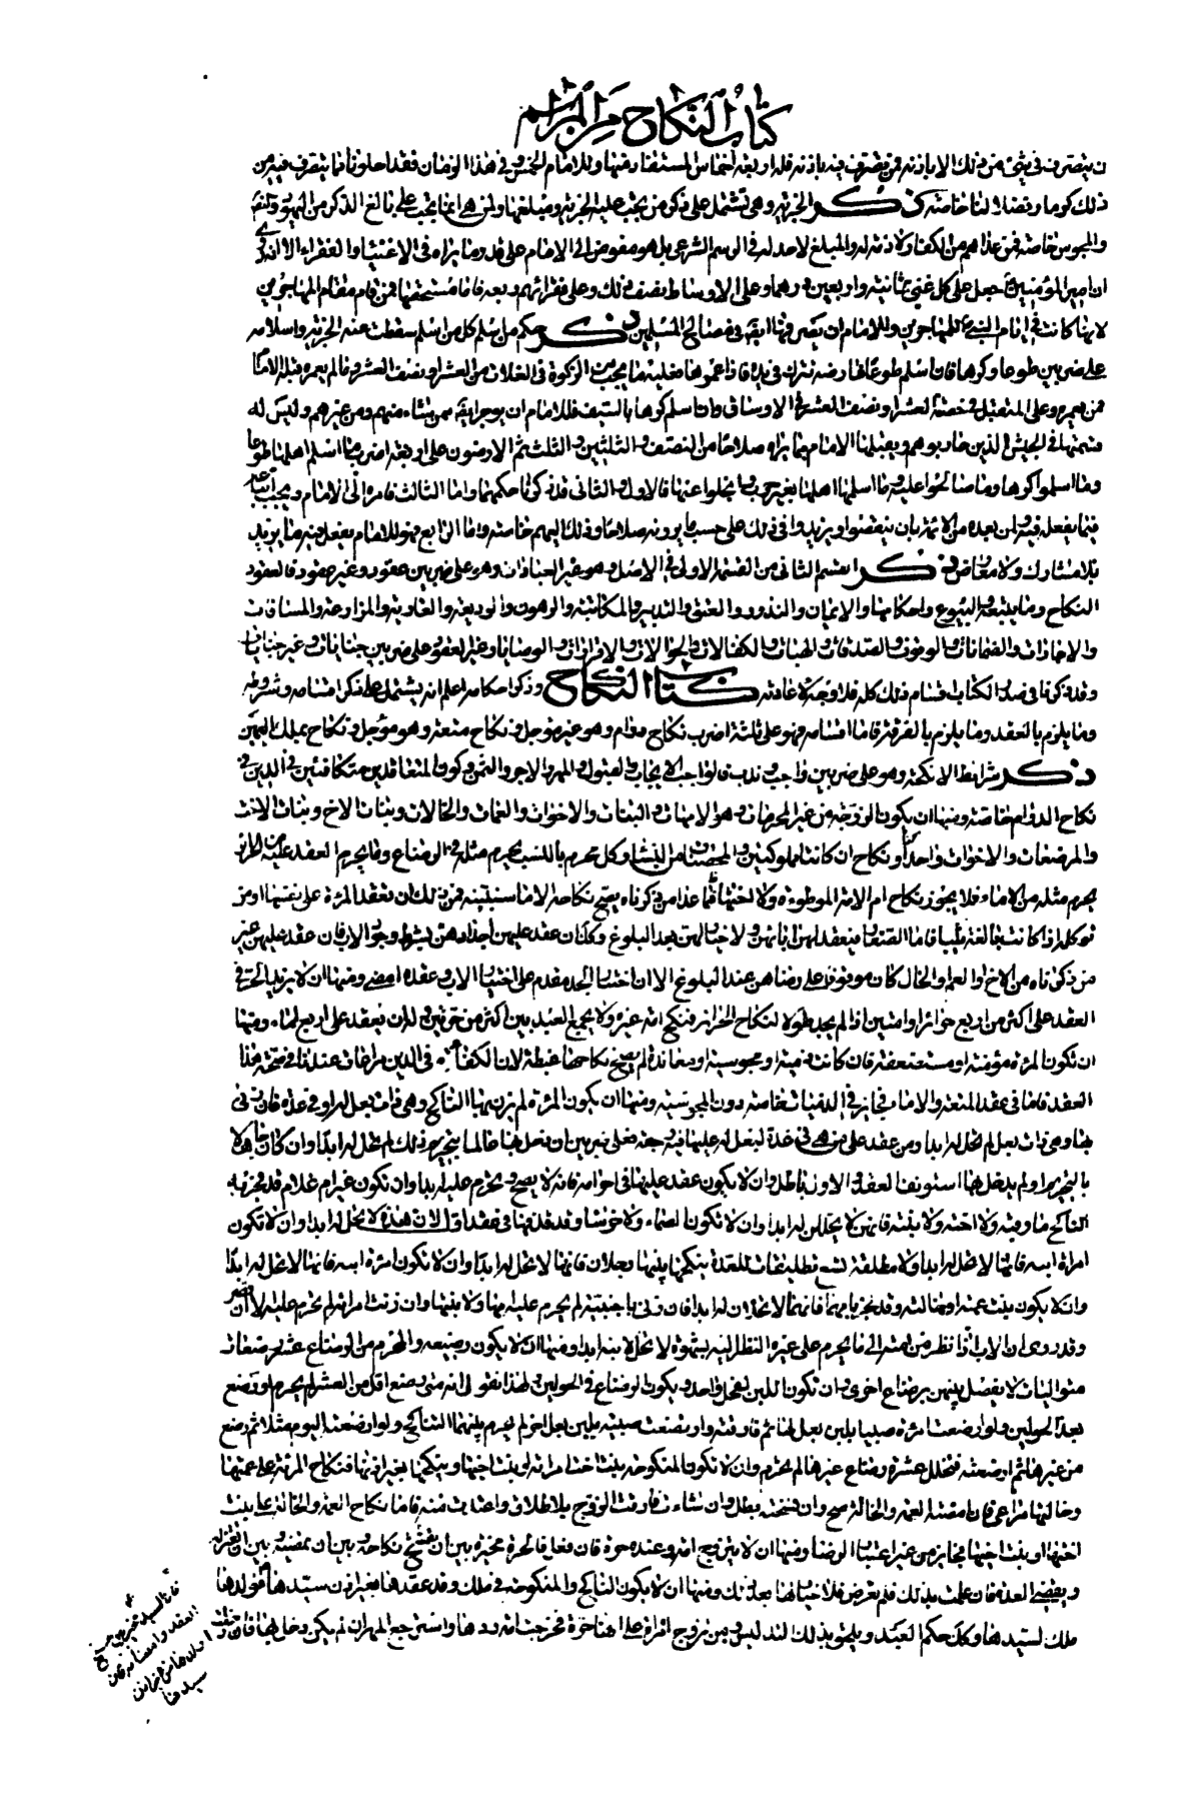 كتاب النكاح من المراسم
ن يتصرف في شيء من ذلك الا باذنه فمن تصرف فيه باذنه فله اربعة اخماس المستفاد منها وللامام الخمس وفي هذا الزمان فقد احلونا فيما يتصرف فيه من
ذلك كرما وفضلا لنا خاصة ذكر الجزية وهي تشتمل على ذكر من يجب عليه الجزية ومبلغها ولمن هي انما يجب على بالغ الذكر من اليهود والنصارى
والمجوس خاصة فمن عداهم من الكفار لا ذمة له والمبلغ لا حد له في الرسم الشرعي بل هو مفوض الى الامام على قدر ما يراه في الاغنياء والفقراء الا انه روي
ان امير المؤمنين ع جعل على كل غني ثمانية واربعين درهما وعلى الاوساط نصف ذلك وعلى فقرائهم ربعه فاما مستحقها فمن قام مقام المهاجرين
لانها كانت في ايام النبي ع للمهاجرين وللامام ان يصرفها ايضا في مصالح المسلمين ذكر حكم من اسلم كل من اسلم سقطت عنه الجزية واسلامه
على ضربين طوعا وكرها فان اسلم طوعا فارضه تترك في يده فاذا عمروها فعليه ما يجب من الزكوة في الغلات من العشر او نصف العشر وما لم يعمره قبله الامام
ممن يعمره وعلى المتقبل في حصته العشر او نصف العشر في الاوساق وان اسلم كرها بالسيف فللامام ان يوجر ارضه ممن يشاء منهم ومن غيرهم وليس له
قسمتها في الجيش الذين حاربوهم ويقبلها الامام بما يراه صلاحا من النصف والثلثين والثلث ثم الارضون على اربعة اضرب ما اسلم اهلها طوعا
وما اسلموا كرها وما صالحوا عليه وما اسلمها اهلها بغير حرب او انجلوا عنها فالاول والثاني قد ذكرنا حكمهما واما الثالث فامره الى الامام ويجب اتباعه
فيما يفعله فيه ولمن بعده من الائمة بان ينقصوا ويزيدوا في ذلك على حسب ما يرونه صلاحا وذلك اليهم خاصة واما الرابع فهو للامام يفعل فيه ما يريد
بلا مشارك ولا معارض ذكر القسم الثاني من القسمة الاولى في الاصل وهو غير العبادات وهو على ضربين عقود وغير عقود فالعقود
النكاح وما يتبعه والبيوع واحكامها والايمان والنذور والعتق والتدبير والمكاتبة والرهون والوديعة والعارية والمزارعة والمساقات
والاجارات والضمانات والوقوف والصدقات والهبات والكفالات والحوالات والاقرارات والوصايا وغير العقود على ضربين جنايات وغير جنايات
وقد ذكرنا في صدر الكتاب اقسام ذلك كله فلا وجه لاعادته كتاب النكاح وذكر احكامه اعلم انه يشتمل على ذكر اقسامه وشروطه
وما يلزم بالعقد وما يلزم بالفرقة فاما اقسامه فهو على ثلثة اضرب نكاح دوام وهو غير مؤجل ونكاح متعة وهو مؤجل ونكاح بملك اليمين
ذكر شرائط الانكحة وهو على ضربين واجب وندب فالواجب الايجاب والقبول والمهر والاجر والثمن وكون المتعاقدين متكافئين في الدين في
نكاح الدوام خاصة ومنها ان يكون الزوجة من غير المحرمات وهو الامهات والبنات والاخوات والعمات والخالات وبنات الاخ وبنات الاخت
والمرضعات والاخوات واحدا ونكاح ان كانتا مملوكتين والمحصنات من النساء وكل محرم بالنسب يحرم مثله في الرضاع وما يحرم العقد عليه من الحرائر
يحرم مثله من الاماء فلا يجوز نكاح ام الامة الموطوءة ولا اختها فما عدا من ذكرناه يصح نكاحه الا ما سنبينه فمن ذلك ان تعقد المرءة على نفسها او من
توكله اذا كانت بالغة ثيبا فاما الصغار فيعقد لهن اباؤهن ولا خيار لهن بعد البلوغ وكك ان عقد عليهن اجدادهن بشرط وجود الاب فان عقد عليهن غير
من ذكرناه من الاخ والعم والخال كان موقوفا على رضاهن عند البلوغ الا ان اختيار الجد مقدم على اختيار الاب وعقده امضى ومنها ان لا يزيد الحر في
العقد على اكثر من اربع حرائر او امتين اذا لم يجد طولا لنكاح الحرائر فنكح امة غيره ولا يجمع العبد بين اكثر من حرتين وله ان يعقد على اربع اماء ومنها
ان تكون المرءة مؤمنة او مستضعفة فان كانت ذمية او مجوسية او معاندة لم يصح نكاحها غبطة لان الكفاءة في الدين مراعات عندنا في صحة هذا
العقد فاما في عقد المتعة والاماء فجائز في الذميات خاصة دون المجوسية ومنها ان يكون المرءة لم يزن بها الناكح وهي ذات بعل او في عدة فان زنى
بها وهي ذات بعل لم تحل له ابدا ومن عقد على من هي في عدة لبعل له عليها فيه رجعة فعلى ضربين ان دخل بها عالما بتحريم ذلك لم تحل له ابدا وان كان جاهلا
بالتحريم او لم يدخل بها استونف العقد والاول باطل وان لا يكون عقد عليها في احرامه فانه لا يصح ويحرم عليه ابدا وان تكون غير ام غلام قد فجر به
الناكح ما وبنته ولا اخته ولا بنته فانهن لا يحللن له ابدا وان لا تكون صماء ولا خرساء وقد قذفها في عقد اول لان هذه لا تحل له ابدا وان لا تكون
امراة ابيه فانها لا تحل له ابدا ولا مطلقة تسع تطليقات للعدة ينكحها بينها رجلان فانها لا تحل له ابدا وان لا تكون امرءة ابنه فانها لا تحل له ابدا
وان لا يكون بنت عمته او خالته وقد فجر بامهما فانهما لا تحلان له ابدا فان زنى باجنبية لم يحرم عليه امها ولا بنتها وان زنت امراته لم يحرم عليه الا ان تصر
وقد روي ان الاب اذا نظر من امته الى ما يحرم على غيره النظر اليه بشهوة لا تحل لابنه ابدا ومنها ان لا يكون رضيعه والمحرم من الرضاع عشر رضعات
متواليات لا يفصل بينهن برضاع اخرى وان تكون اللبن لفحل واحد ويكون الرضاع في الحولين ولهذا نقول انه متى رضع اقل من العشر لم يحرم ولو رضع
بعد الحولين ولو ارضعت امرءة صبيا بلبن بعل لها ثم فارقته وارضعت صبية بلبن بعل اخر لم يحرم بينهما التناكح ولو ارضعته اليوم مثلا ثم رضع
من غيرها ثم ارضعته فتخلل عشرة رضاع غيرها لم يحرم وان لا تكون المنكوحة بنت اخت امراته او بنت اخيها وينكحها بغير اذنها فنكاح المرءة على عمتها
وخالتها مراعى فان امضته العمة والخالة صح وان فسخته بطل وان شاءت فارقت الزوج بلا طلاق واعتدت منه فاما نكاح العمة والخالة على بنت
اختها او بنت اخيها فجائز من غير اعتبار الرضا ومنها ان لا يتزوج امة وعنده حرة فان فعل فالحرة مخيرة بين ان تفسخ نكاحه وبين ان تمضيه وبين ان تعتزله
ويقضي العدة فان علمت بذلك فلم تعترض فلا خيار لها بعد ذلك ومنها ان لا يكون الناكح والمنكوحة في ملك وقد عقدها بغير اذن سيدها فولدها
ملك لسيدها وكك حكم العبد ويلحق بذلك التدليس ومن تزوج امراة على انها حرة فخرجت امة ردها واسترجع المهر ان لم يكن دخل بها فان دخلت
فان السيد مخير بين فسخ
العقد وامضائه فان
اولدها من غير اذن
سيدها